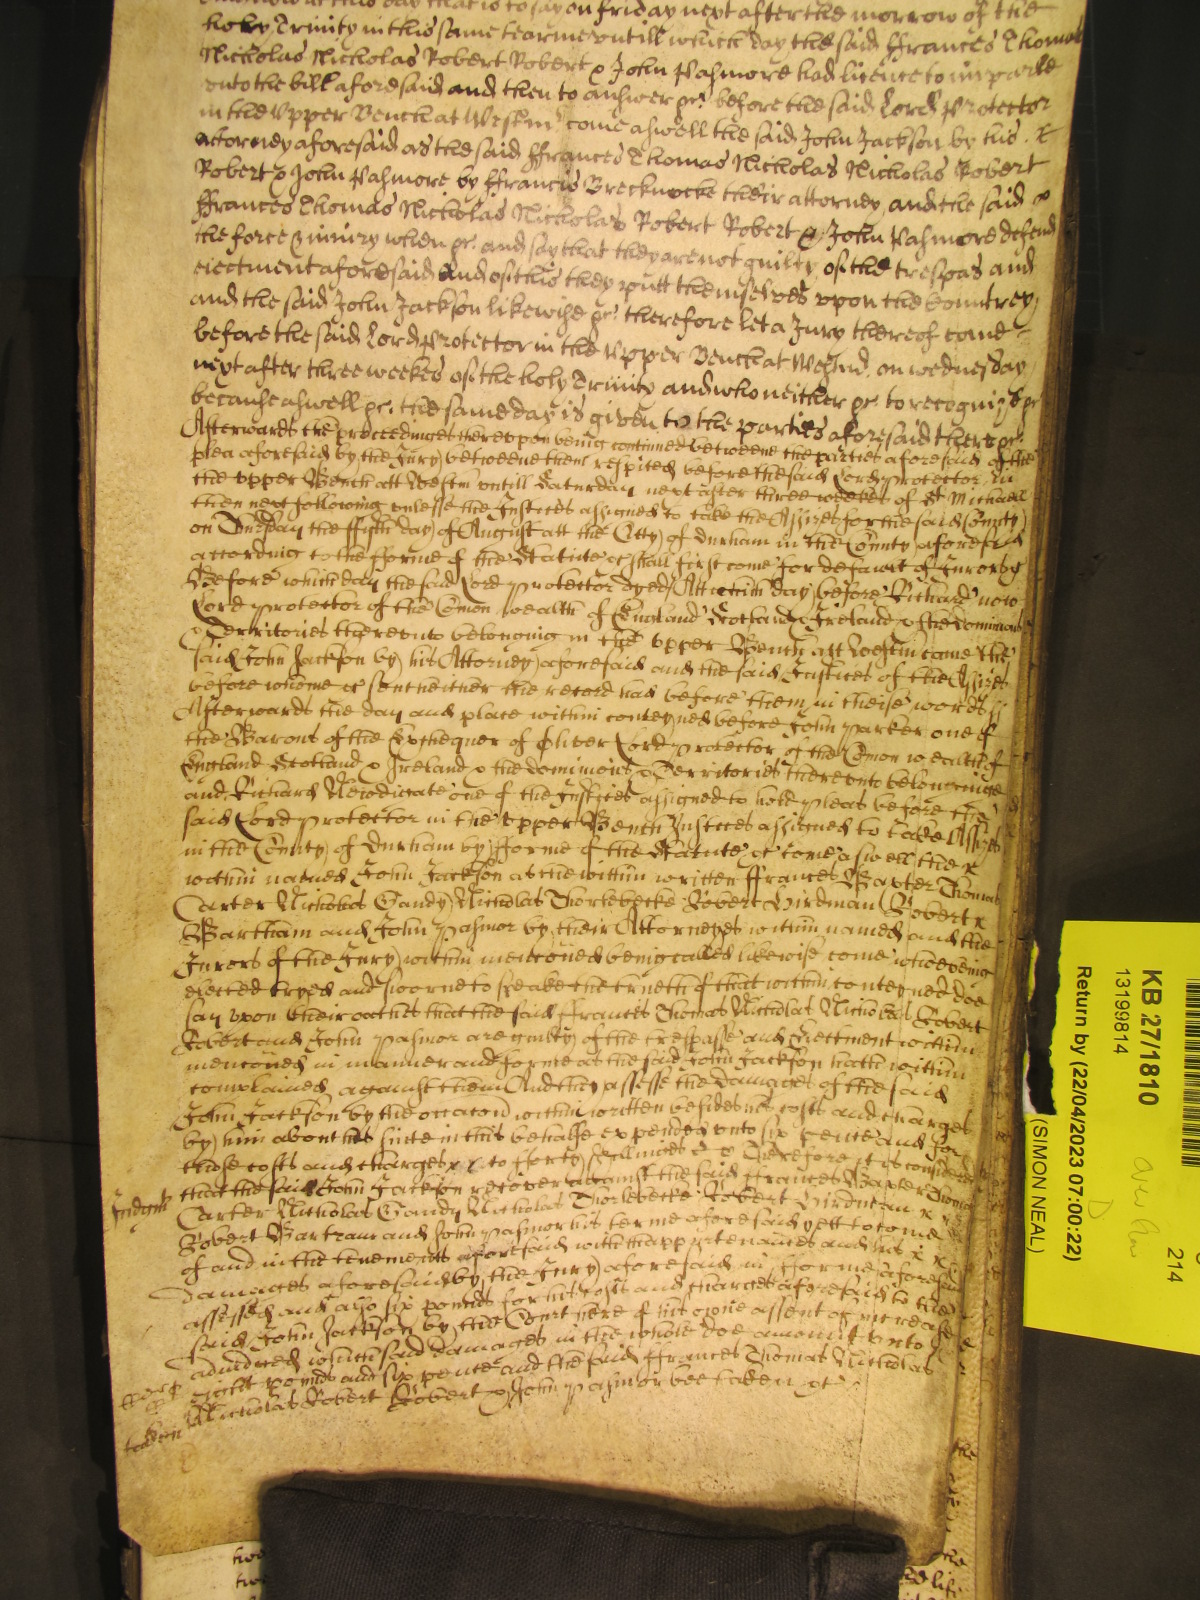 at this day that is to say on friday next after the morrow of the
holy Trinity in this same tearme untill which day the said ffrances Thomas
Nicholas Nicholas Robert Robert & John Pasmore had licence to imparle
unto the bill aforesaid and then to answer &c. before the said Lord Protector
in the Upper Bench at Westm. come aswell the said John Jackson by his
attorney aforesaid as the said ffrances Thomas Nicholas Nicholas Robert
Robert & John Pasmore by ffrancis Brecknocke their attorney, and the said
ffrances Thomas Nicholas Nicholas Robert Robert & John Pasmore defend
the force & iniury when &c. and say that they are not guilty of the trespas and
eiectment aforesaid And of this they putt themselves upon the Countrey
and the said John Jackson likewise &c. therefore let a Jury thereof come
before the said Lord Protector in the Upper Bench at Westmr. on wednesday
next after three weekes of the holy Trinity and who neither &c. to recognise &c
because aswell &c. the same day is given to the parties aforesaid there &c.
Afterwards the proceedings thereupon being continued betweene the parties aforesaid of the
plea aforesaid by the Jury betweene them respited before the said Lord Protector in
the Upper Bench att Westm untill Saturday next after three weekes of St Michaell
then next following unlesse the Justices assigned to take the Assizes for the said County
on Thursday the ffifth day of August att the Citty of Durham in the County aforesaid
according to the fforme of the Statute &c shall first come for default of Jurors &c
Before which day the said Lord Protector dyed Att which day before Richard now
Lord Protector of the Comon wealth of England Scotland & Ireland & the Dominions
& Territories thereunto belonging in the Upper Bench att Westm came the
said John Jackson by his Attorney aforesaid and the said Justices of the Assizes
before whome &c sent hither the record had before them in theise words ss
Afterwards the day and place within conteyned before John Parker one of
the Barons of the Exchequer of Oliver Lord Protector of the Comon wealth of
England Scotland & Ireland & the dominions & Territories thereunto belonginge
and Richard Newdigate one of the Justices assigned to hold pleas before the
said Lord Protector in the Upper Bench Justices assigned to take Assizes
in the County of Durham by fforme of the Statute &c come aswell the x
within named John Jackson as the within written ffrances Baxter Thomas
Carter Nicholas Gandy Nicholas Thorlebecke Robert Birdman Robert x
Bartram and John Pasmor by their Attorneyes within named and the
Jurors of the Jury within mencioned being called likewise come who being
elected tryed and sworne to speake the trueth of that within conteyned doe
say upon their oathes that the said ffrances Thomas Nicholas Nicholas Robert
Robert and John Pasmor are guilty of the trespasse and Eiectment within
mencioned in manner and forme as the said John Jackson hath within
complained against them And they assesse the damages of the said
John Jackson by the occation within written besides his costs and charges
by him about his suite in this behalfe expended unto six pence and for
those costs and charges x x to forty shillings &c Therefore it is considered
Judgmt that the said John Jackson recover against the said ffrances Baxter Thomas
Carter Nicholas Gandy Nicholas Thorlebecke Robert Birdman x x
Robert Bartram and John Pasmor his terme aforesaid yett to come
of and in the tenements aforesaid with thappurtenances and his x x
damages aforesaid by the Jury aforesaid in fforme aforesaid
assessed and also six pounds for his costs and charges aforesaid to the
said John Jackson by the Court here of his owne assent of increase
adiudged which said damages in the whole doe amount unto
eight pounds and six pence and the said ffrances Thomas Nicholas
Nicholas Robert Robert & John Pasmor bee taken &c
taken
KB 27/1810
13199814
Return by (22/04/2023 07:00:22)
(SIMON NEAL)
214